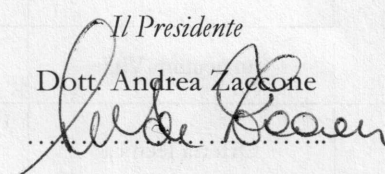 Il Presidente
Dott. Andrea Zaccone